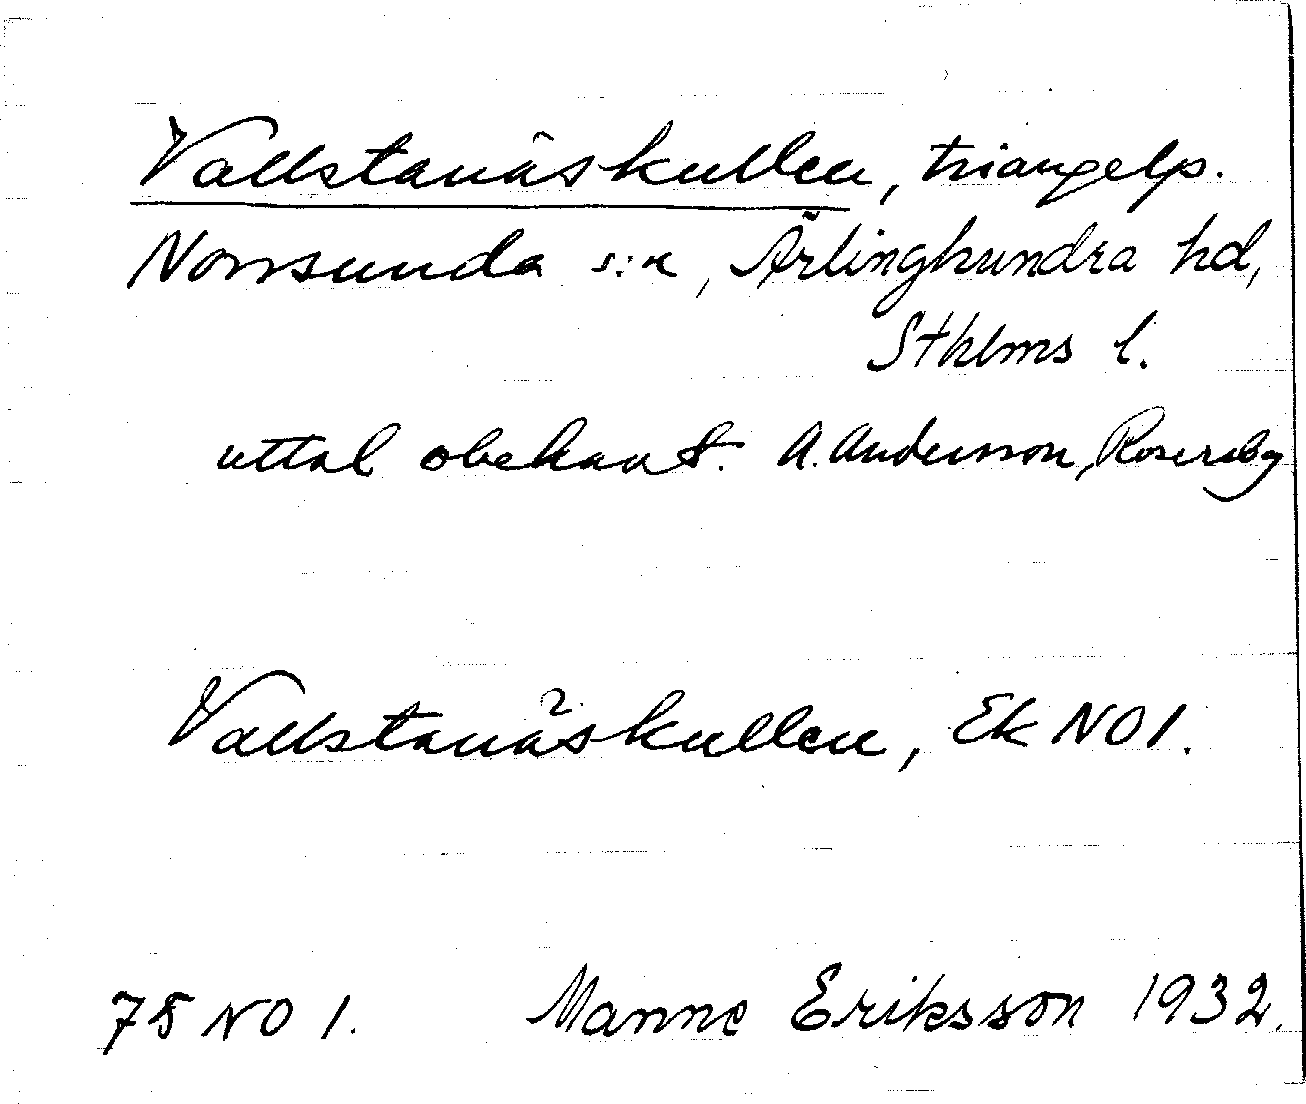 Vallstanäskullen, triangelp.
Norrsunda s:n, Ärlinghundra hd,
Sthlms l.
uttal obekant. A. Andersson, Rosersbg
Vallstanäskullen, Ek NO1.
75 NO 1. Manne Eriksson 1932.